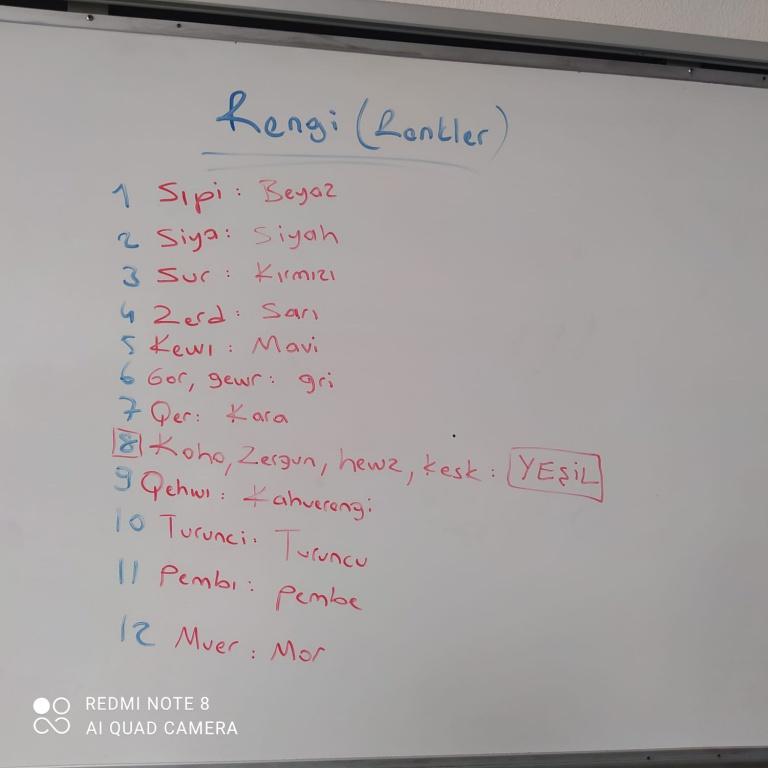 Rengi (Renkler)
1 Sıpi : Beyaz
2 Siya : Siyah
3 Sur : Kırmızı
4 Zerd : Sarı
5 Kewı : Mavi
6 Gor, gewr : gri
7 Qer : Kara
8 Koho, Zergun, hewz, kesk : YEŞİL
9 Qehwı : Kahverengi
10 Turunci : Turuncu
11 Pembı : pembe
12 Muer : Mor
REDMI NOTE 8
AI QUAD CAMERA